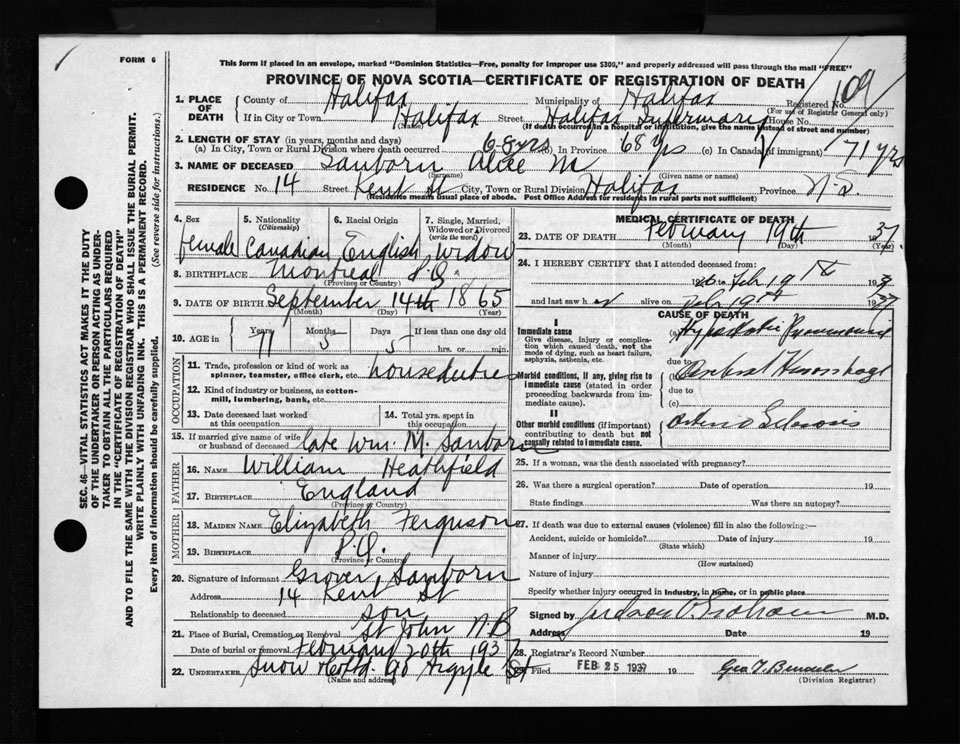 FORM 6
This form if placed in an envelope, marked "Dominion Statistics—Free, penalty for improper use $300," and properly addressed will pass through the mail "FREE"
PROVINCE OF NOVA SCOTIA—CERTIFICATE OF REGISTRATION OF DEATH
109
SEC. 46—VITAL STATISTICS ACT MAKES IT THE DUTY
OF THE UNDERTAKER OR PERSON ACTING AS UNDER-
TAKER TO OBTAIN ALL THE PARTICULARS REQUIRED
IN THE "CERTIFICATE OF REGISTRATION OF DEATH"
AND TO FILE THE SAME WITH THE DIVISION REGISTRAR WHO SHALL ISSUE THE BURIAL PERMIT.
WRITE PLAINLY WITH UNFADING INK. THIS IS A PERMANENT RECORD.
Every item of Information should be carefully supplied. (See reverse side for instructions.)
1. PLACE OF DEATH County of Halifax Municipality of Halifax Registered No.
(For use of Registrar General only)
If in City or Town Halifax Street Halifax Infirmary House No.
(Name) (If death occurred in a hospital or institution, give the name instead of street and number)
2. LENGTH OF STAY (in years, months and days)
(a) In City, Town or Rural Division where death occurred 68 yrs (b) In Province 68 yrs (c) In Canada (if immigrant) 71 yrs
3. NAME OF DECEASED Sanborn Alice M
(Surname) (Given name or names)
RESIDENCE No. 14 Street Kent St City, Town or Rural Division Halifax Province N.S.
(Residence means usual place of abode. Post Office Address for residents in rural parts not sufficient)
4. Sex 5. Nationality (Citizenship) 6. Racial Origin 7. Single, Married, Widowed or Divorced (write the word)
female Canadian English Widow
8. BIRTHPLACE Montreal P.Q.
(Province or Country)
9. DATE OF BIRTH September 14th 1865
(Month) (Day) (Year)
10. AGE in Years Months Days If less than one day old
71 5 5 hrs. or min.
OCCUPATION
11. Trade, profession or kind of work as spinner, teamster, office clerk, etc. house duties
12. Kind of industry or business, as cotton-mill, lumbering, bank, etc.
13. Date deceased last worked at this occupation 14. Total yrs. spent in this occupation
15. If married give name of wife or husband of deceased late Wm. M. Sanborn
FATHER
16. NAME William Heathfield
17. BIRTHPLACE England
(Province or Country)
MOTHER
18. MAIDEN NAME Elizabeth Ferguson
19. BIRTHPLACE P.Q.
(Province or Country)
20. Signature of informant Grover Sanborn
Address 14 Kent St
Relationship to deceased son
21. Place of Burial, Cremation or Removal St John N.B
Date of burial or removal February 20th 1937
22. UNDERTAKER Snow & Co Ltd. 90 Argyle St
(Name and address)
MEDICAL CERTIFICATE OF DEATH
23. DATE OF DEATH February 19th 37
(Month) (Day) (Year)
24. I HEREBY CERTIFY that I attended deceased from:
to Feb 19th 193
and last saw her alive on Feb 19th 1937
CAUSE OF DEATH
I
Immediate cause
Give disease, injury or complication which caused death, not the mode of dying, such as heart failure, asphyxia, asthenia, etc.
(a) Hypostatic Pneumonia
due to
Morbid conditions, if any, giving rise to immediate cause (stated in order proceeding backwards from immediate cause).
(b) Cerebral Hemorrhage
due to
(c)
II
Other morbid conditions (if important) contributing to death but not causally related to immediate cause.
Arterio Sclerosis
25. If a woman, was the death associated with pregnancy?
26. Was there a surgical operation? Date of operation 19
State findings Was there an autopsy?
27. If death was due to external causes (violence) fill in also the following:—
Accident, suicide or homicide? Date of injury 19
(State which)
Manner of injury
(How sustained)
Nature of injury
Specify whether injury occurred in Industry, in Home, or in public place
Signed by M.D.
Address Date 19
28. Registrar's Record Number
Filed FEB 25 1937 19
(Division Registrar)